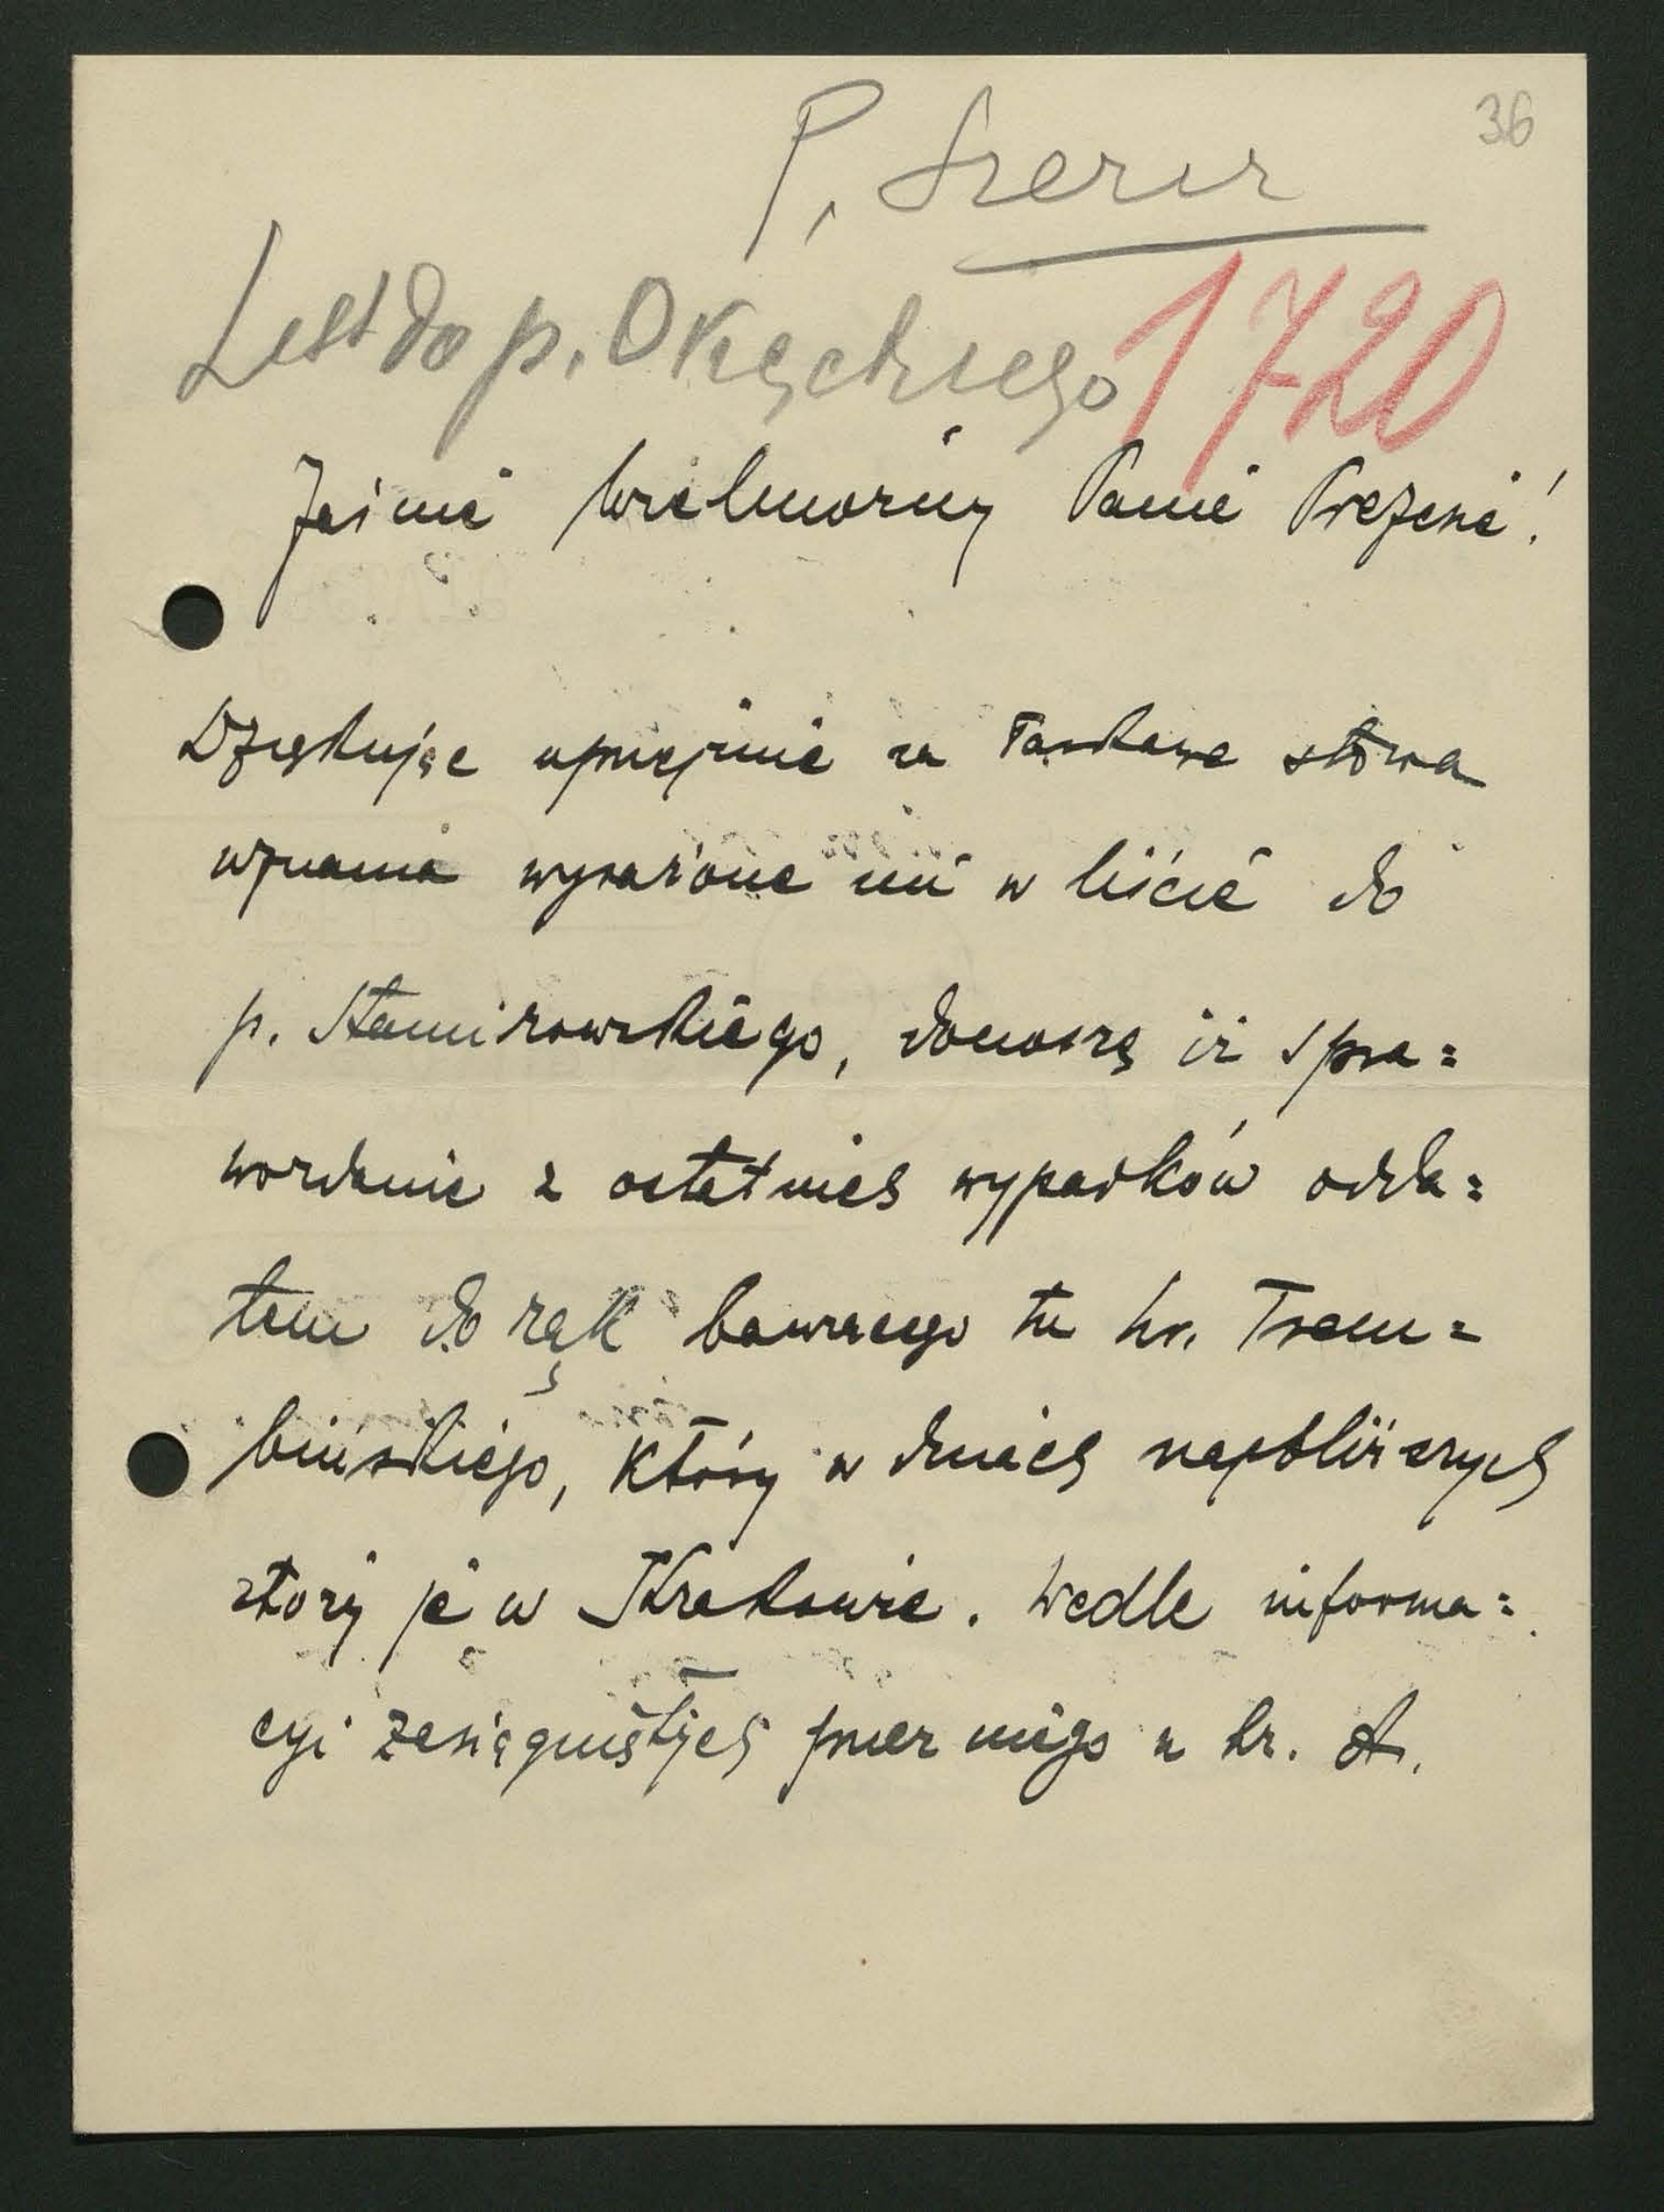 36
P. Szerer
List do p. Okęckiego 1720
Jaśnie Wielmożny Panie Prezesie!
Dziękując uprzejmie za łaskawe słowa
uznania wyrażone mi w liście do
p. Stamirowskiego, donoszę iż spra=
wozdanie z ostatnich wypadków odda=
łem do rąk bawiącego tu hr. Trem=
bińskiego, który w dniach najbliższych
złoży je w Krakowie. Wedle informa=
cyi zasiągniętych przez niego u hr. A.